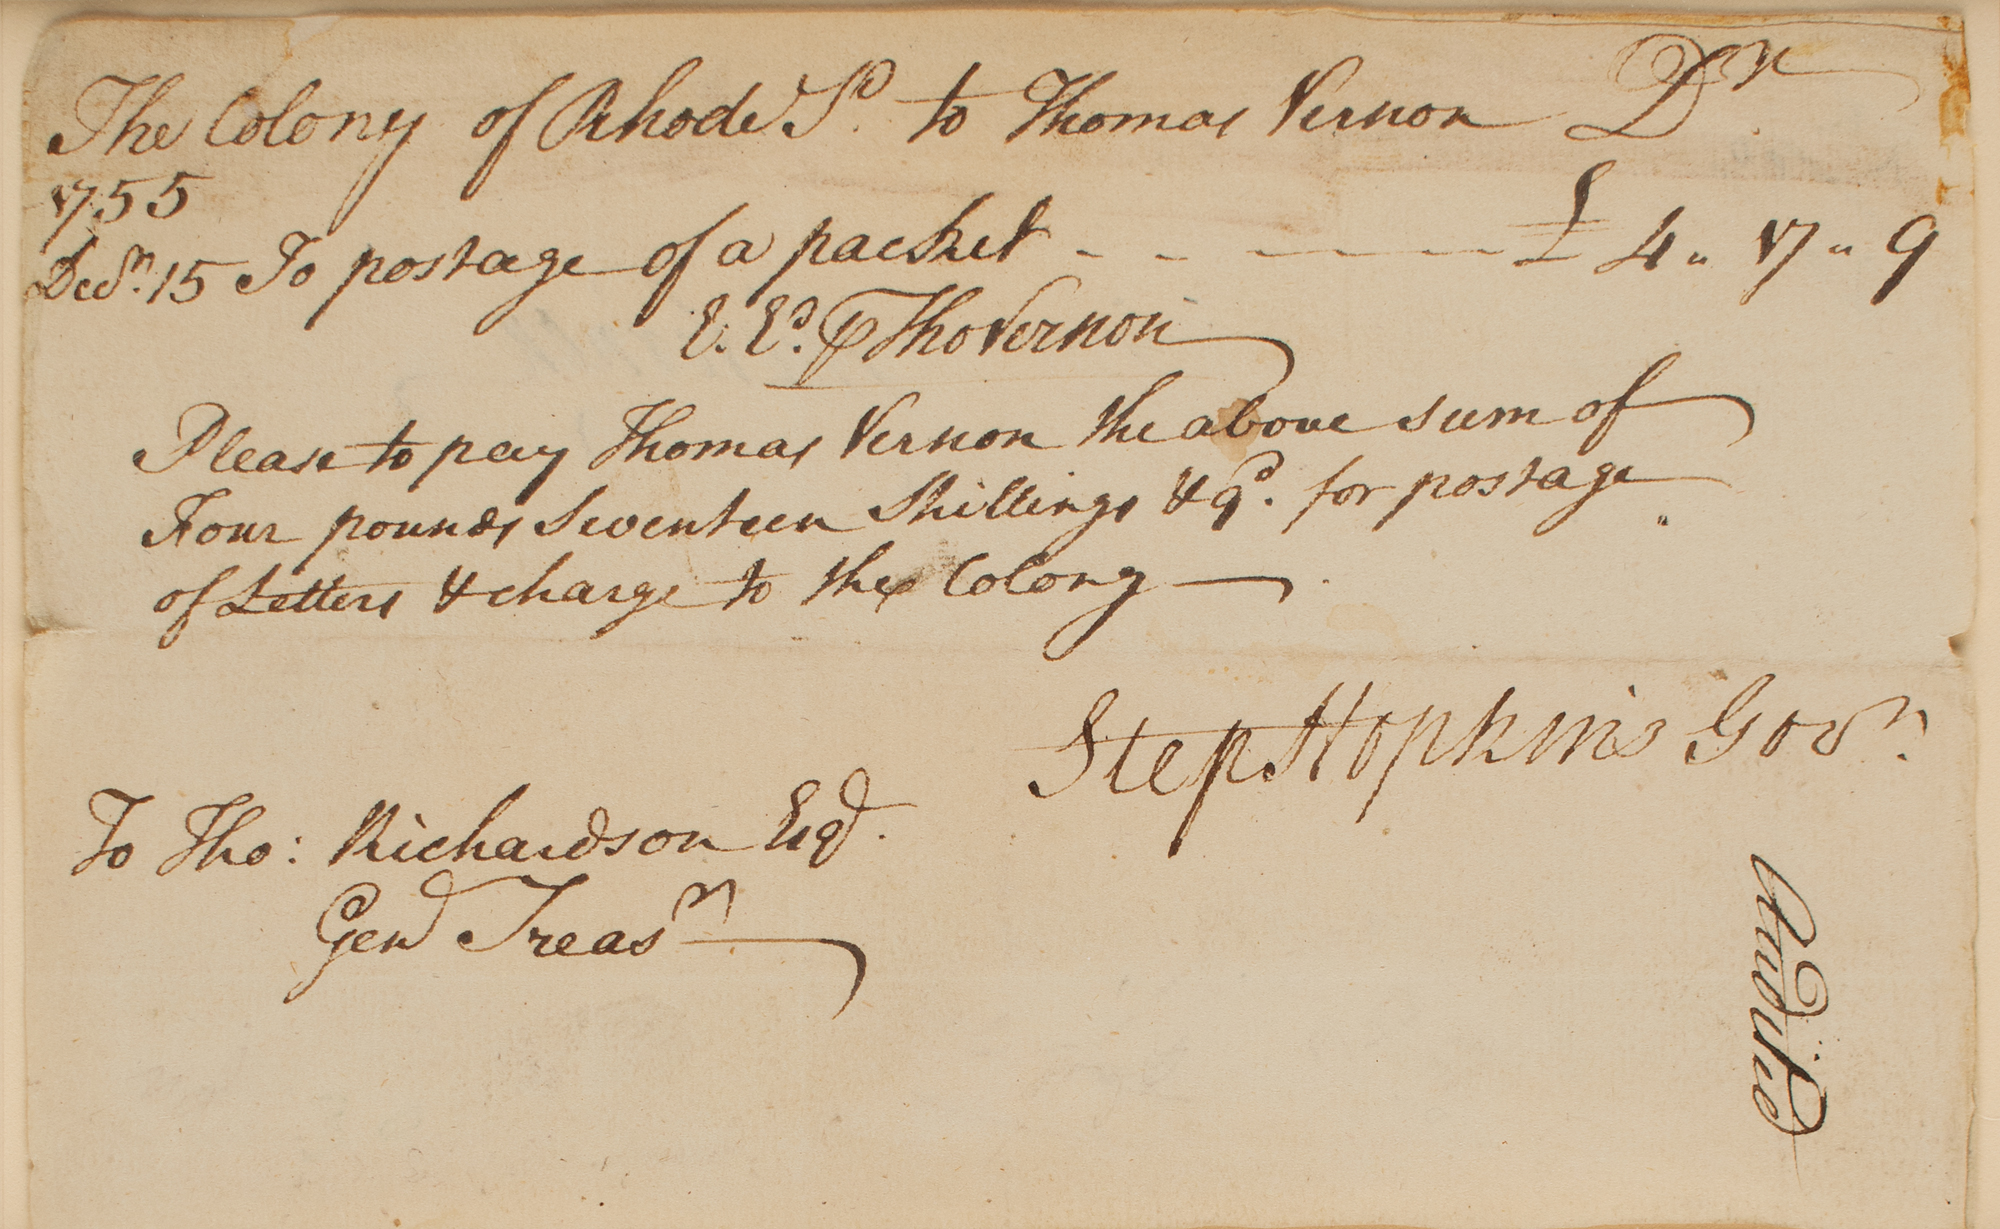 The Colony of Rhode Isd. to Thomas Vernon Dr.
1755
Decr. 15 To postage of a packet - - - - - £ 4 " 17 " 9
E. Ed. ⅌ Tho Vernon
Please to pay Thomas Vernon the above sum of
Four pounds Seventeen Shillings & 9d. for postage
of Letters & charge to the Colony
Step Hopkins Govr.
To Tho: Richardson Esqr.
Genl Treasr
Audited